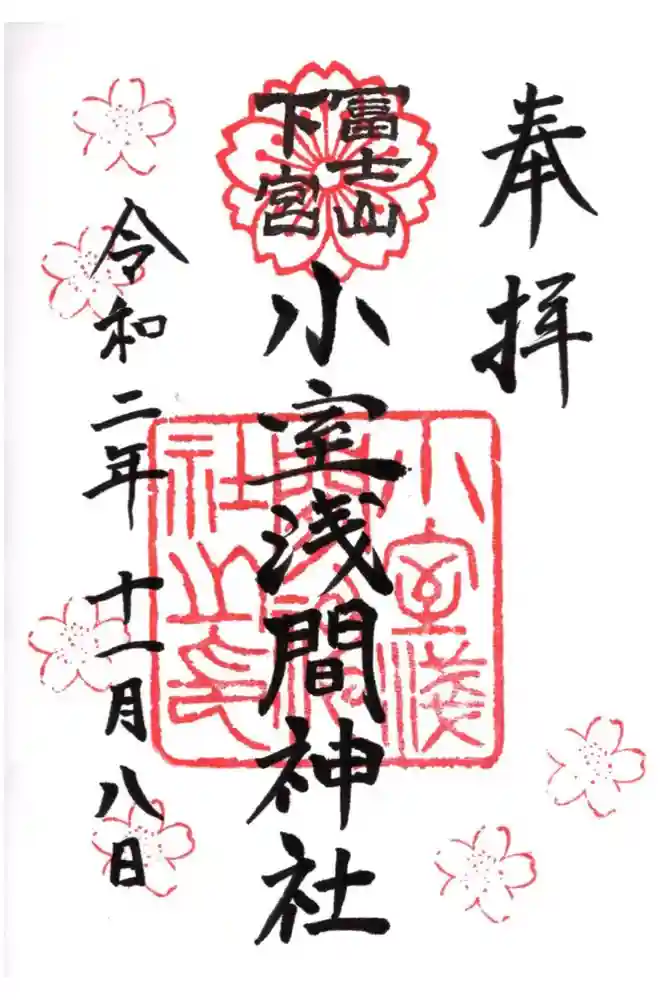 奉拝
富士山
下宮
小室浅間神社
小室浅
間神
社之印
令和二年十一月八日